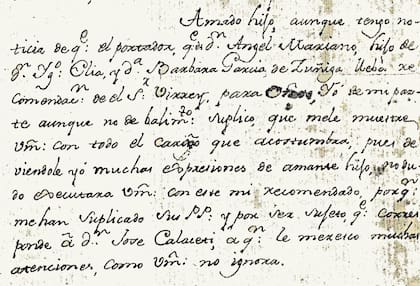 Amado hijo, aunque tengo no-
ticia de q.e el portador, q.e es d.n Angel Mariano, hijo de
d.n Ig.o Elia, y d.a Barbara Garcia de Zuñiga lleba re
Comendac.n de el S.r Virrey, para Yo de mi par-
te aunque no de balim.to Suplico, que mele muestre
Vm: con todo el Cariño que acostumbra, pues de
viendole yó muchas expresiones de amante hijo, no du-
do executara Vm: con este mi recomendado, porq.e
me han Suplicado Sus P.s, y por ser Sujeto, q.e corres
ponde â d.n Jose Calaceti, â q.n le meresco muchas
atenciones, como Vm: no ignora.